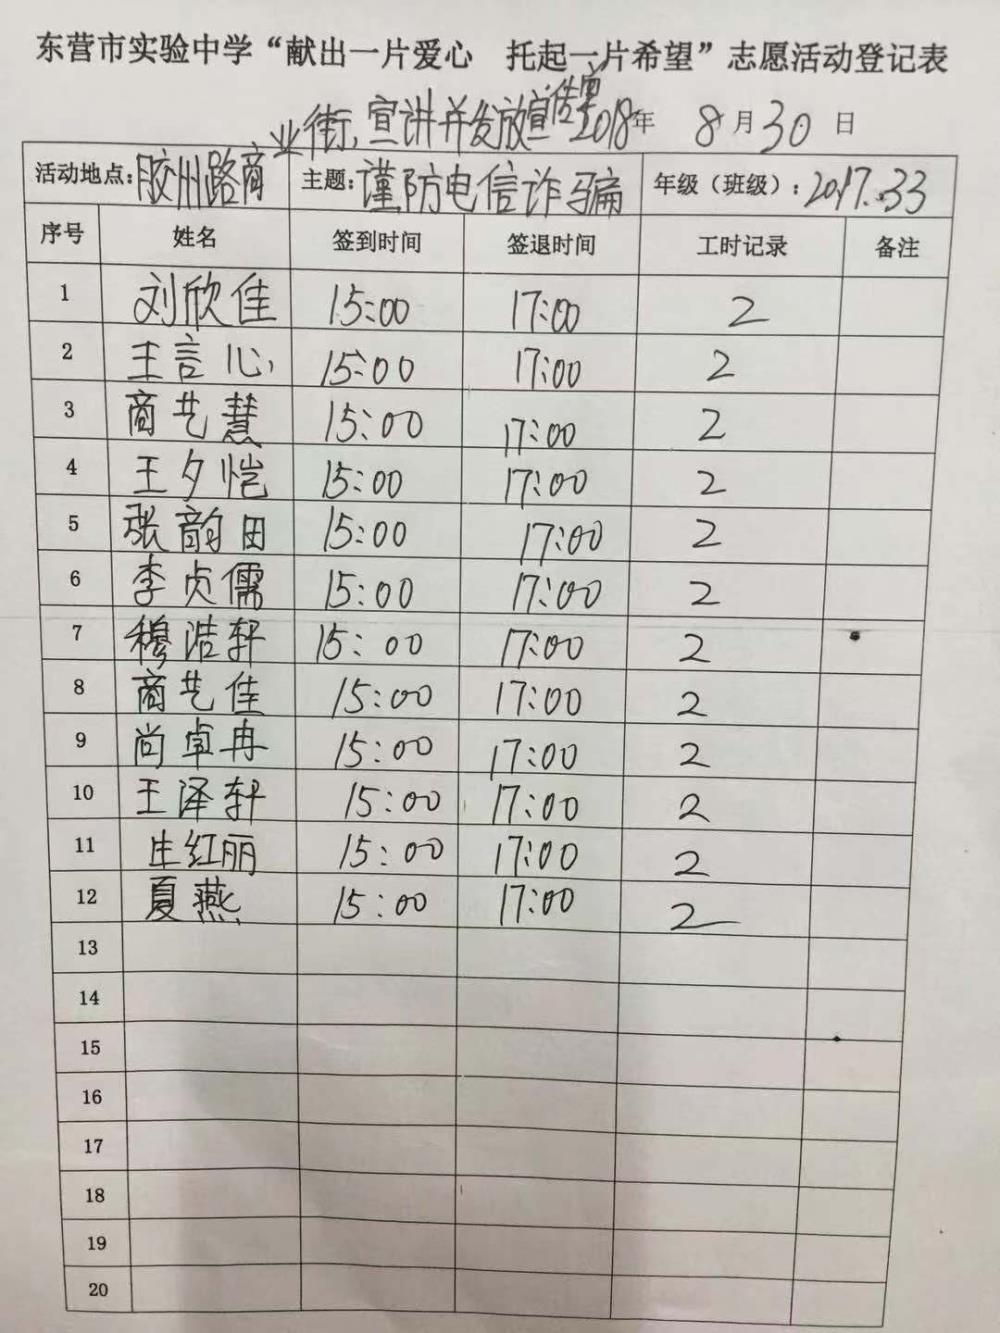 东营市实验中学“献出一片爱心 托起一片希望”志愿活动登记表
业街,宣讲并发放宣传单 2018年 8月30日
活动地点:胶州路商 主题:谨防电信诈骗 年级(班级):2017.33
序号 姓名 签到时间 签退时间 工时记录 备注
1 刘欣佳 15:00 17:00 2
2 王言心 15:00 17:00 2
3 商艺慧 15:00 17:00 2
4 王夕恺 15:00 17:00 2
5 张韵田 15:00 17:00 2
6 李贞儒 15:00 17:00 2
7 穆浩轩 15:00 17:00 2
8 商艺佳 15:00 17:00 2
9 尚卓冉 15:00 17:00 2
10 王泽轩 15:00 17:00 2
11 生红丽 15:00 17:00 2
12 夏燕 15:00 17:00 2
13
14
15
16
17
18
19
20